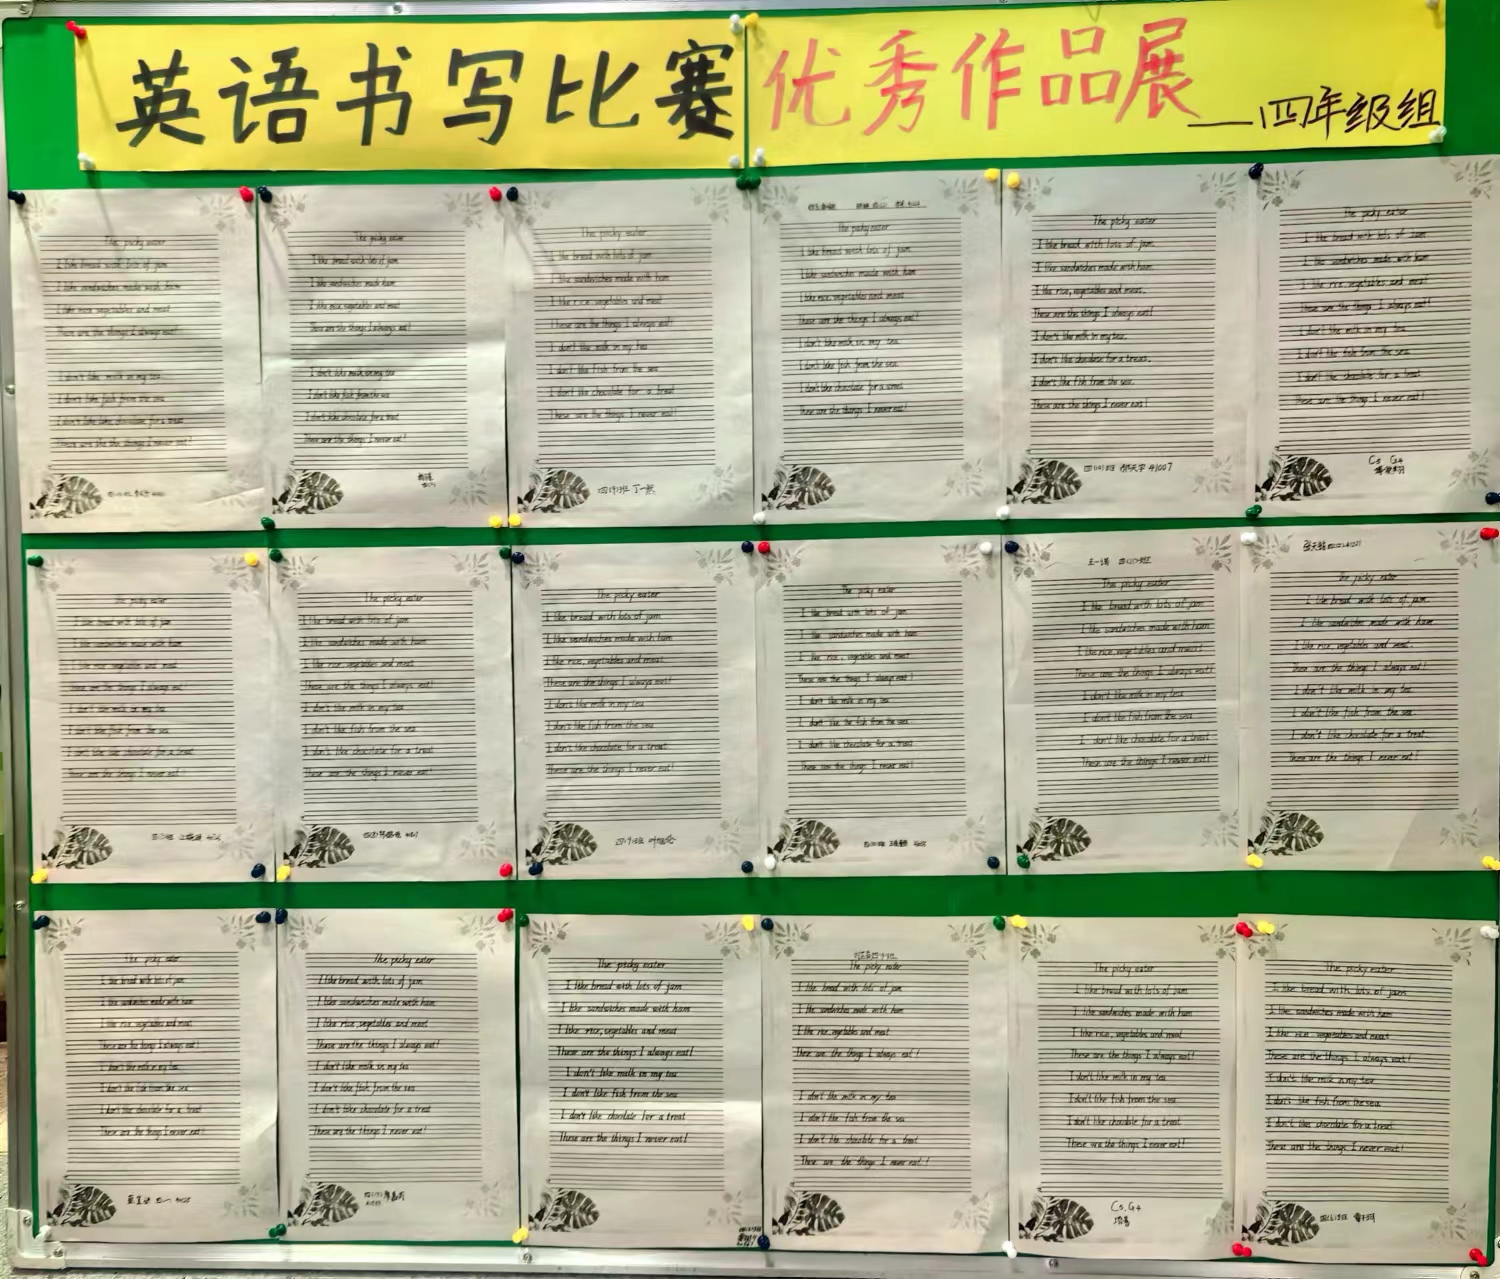 英语书写比赛优秀作品展
——四年级组
The picky eater
I like bread with lots of jam
I like sandwiches made with ham
I like rice vegetables and meat
These are the things I always eat!
I don't like milk in my tea
I don't like fish from the sea
I don't like chocolate for a treat
These are the the things I never eat!
The picky eater
I like bread with lots of jam
I like sandwiches made ham
I like rice vegetables and meat
These are the things I always eat!
I don't like milk in my tea
I don't like fish from the sea
I don't like chocolate for a treat
These are the things I never eat!
The picky eater
I like bread with lots of jam
I like sandwiches made with ham
I like rice vegetables and meat
These are the things I always eat!
I don't like milk in my tea
I don't like fish from the sea
I don't like chocolate for a treat
These are the things I never eat!
四(9)班 丁一然
The picky eater
I like bread with lots of jam
I like sandwiches made with ham
I like rice, vegetables and meat
These are the things I always eat!
I don't like milk in my tea
I don't like fish from the sea
I don't like chocolate for a
These are the things I never eat!
The picky eater
I like bread with lots of jam
I like sandwiches made with ham.
I like rice, vegetables and meat.
These are the things I always eat!
I don't like milk in my tea.
I don't like chocolate for a treat.
I don't like fish from the sea.
These are the things I never eat!
41007
The picky eater
I like bread with lots of jam
I like sandwiches made with ham
I like rice vegetables and meat
These are the things I always eat!
I don't like milk in my tea
I don't like fish from the sea
I don't like chocolate for a treat
These are the thing I never eat!
C5 G4
The picky eater
I like bread with lots of jam
I like sandwiches made with ham
I like rice vegetables and meat
These are the things I always eat
I don't like milk in my tea
I don't like fish from the sea
I don't like like chocolate for a treat
These are the things I never eat!
The picky eater
I like bread with lots of jam
I like sandwiches made with ham
I like rice, vegetables and meat
These are the things I always eat!
I don't like milk in my tea
I don't like fish from the sea
I don't like chocolate for a treat
These are the things I never eat!
The picky eater
I like bread with lots of jam
I like sandwiches made with ham
I like rice, vegetables and meat.
These are the things I always eat!
I don't like milk in my tea
I don't like fish from the sea
I don't like chocolate for a treat
These are the things I never eat!
The picky eater
I like bread with lots of jam
I like sandwiches made with ham
I like rice, vegetables and meat
These are the things I always eat!
I don't like milk in my tea
I don't like the fish from the sea
I don't like chocolate for a treat
These are the things I never eat!
王一诺
The picky eater
I like bread with lots of jam
I like sandwiches made with ham
I like rice, vegetables and meat!
These are the things I always eat!
I don't like milk in my tea
I don't like fish from the sea
I don't like chocolate for a treat
These are the things I never eat!
The picky eater
I like bread with lots of jam.
I like sandwiches made with ham
I like rice, vegetables and meat.
These are the things I always eat!
I don't like milk in my tea
I don't like fish from the sea
I don't like chocolate for a treat.
These are the things I never eat!
The picky eater
I like bread with lots of jam
I like sandwiches made with ham
I like rice vegetables and meat
These are the things I always eat!
I don't like milk in my tea
I don't like fish from the sea
I don't like chocolate for a treat
These are the things I never eat!
The picky eater
I like bread with lots of jam
I like sandwiches made with ham
I like rice, vegetables and meat
These are the things I always eat!
I don't like milk in my tea
I don't like fish from the sea
I don't like chocolate for a treat
These are the things I never eat!
The picky eater
I like bread with lots of jam
I like sandwiches made with ham
I like rice, vegetables and meat
These are the things I always eat!
I don't like milk in my tea
I don't like fish from the sea
I don't like chocolate for a treat
These are the things I never eat!
The picky eater
I like bread with lots of jam
I like sandwiches made with ham
I like rice, vegetables and meat
These are the things I always eat!
I don't like milk in my tea
I don't like fish from the sea
I don't like chocolate for a treat
These are the things I never eat!
The picky eater
I like bread with lots of jam
I like sandwiches made with ham
I like rice, vegetables and meat
These are the things I always eat!
I don't like milk in my tea
I don't like fish from the sea
I don't like chocolate for a treat
These are the things I never eat!
C5, G4
The picky eater
I like bread with lots of jam
I like sandwiches made with ham
I like rice, vegetables and meat
These are the things I always eat!
I don't like milk in my tea
I don't like fish from the sea
I don't like chocolate for a treat
These are the things I never eat!